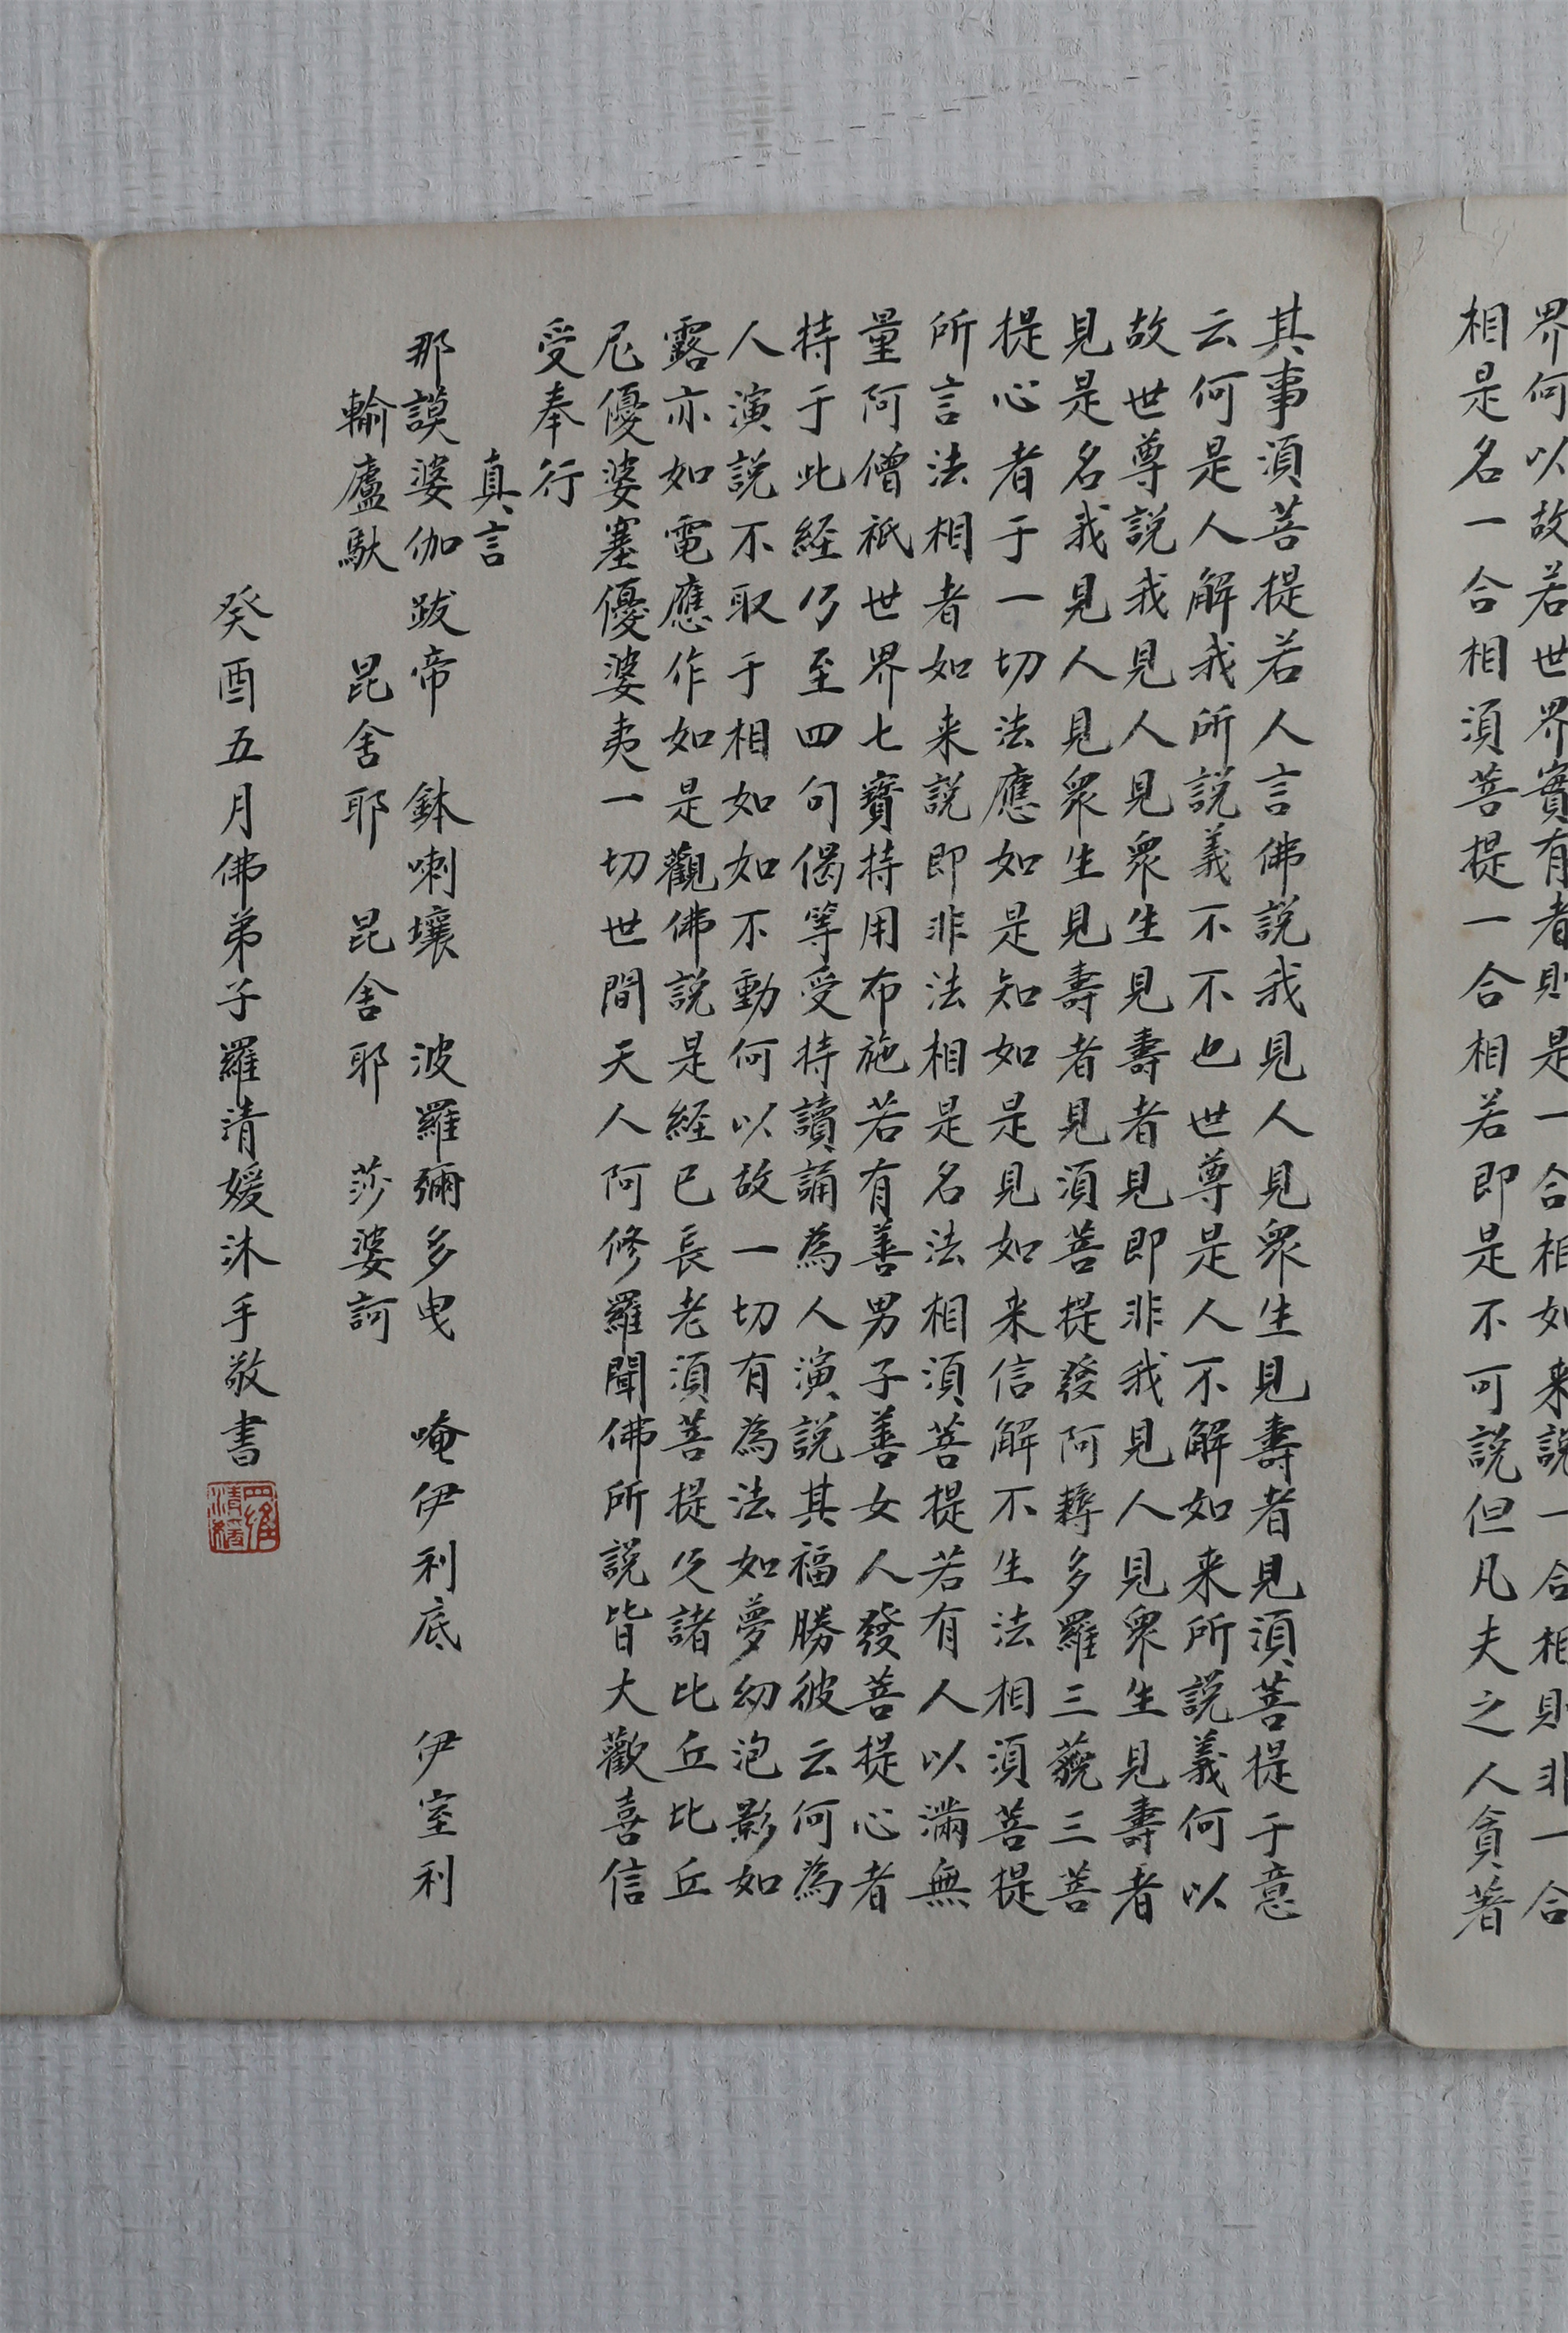 界何以故若世界實有者則是一合相如来説一合相則非一合
相是名一合相須菩提一合相若即是不可説但凡夫之人貪著
其事須菩提若人言佛説我見人見衆生見壽者見須菩提于意
云何是人解我所説義不不也世尊是人不解如来所説義何以
故世尊説我見人見衆生見壽者見即非我見人見衆生見壽者
見是名我見人見衆生見壽者見須菩提發阿耨多羅三藐三菩
提心者于一切法應如是知如是見如来信解不生法相須菩提
所言法相者如来説即非法相是名法相須菩提若有人以滿無
量阿僧祇世界七寶持用布施若有善男子善女人發菩提心者
持于此経乃至四句偈等受持讀誦為人演説其福勝彼云何為
人演説不取于相如如不動何以故一切有為法如夢幻泡影如
露亦如電應作如是觀佛説是経已長老須菩提及諸比丘比丘
尼優婆塞優婆夷一切世間天人阿修羅聞佛所説皆大歡喜信
受奉行
真言
那謨婆伽跋帝 鉢喇壤 波羅彌多曳 唵伊利底 伊室利
輸盧馱 昆舍耶 昆舍耶 莎婆訶
癸酉五月佛弟子羅清媛沐手敬書
羅清媛